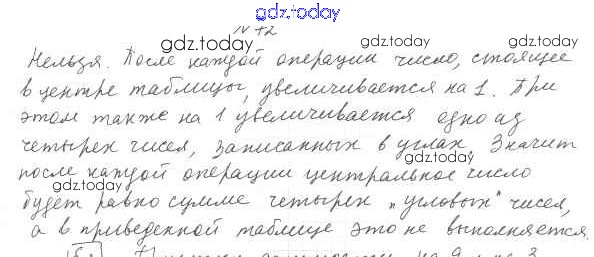 IV +2
gdz.today
Нельзя. После каждой операции число, стоящее
gdz.today gdz.today
в центре таблицы, увеличивается на 1. При
gdz.today gdz.today
этом также на 1 увеличивается одно из
четырех чисел, записанных в углах. Значит
gdz.today
после каждой операции центральное число
gdz.today
будет равно сумме четырех „угловых" чисел,
gdz.today gdz.today
а в приведенной таблице это не выполняется.